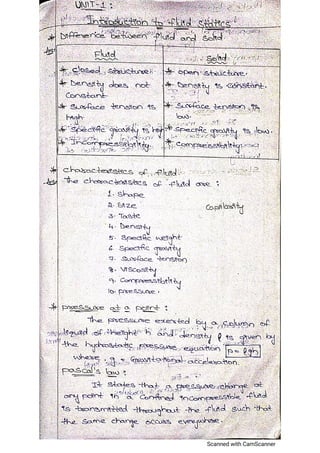 UNIT-1:
Introduction to fluid statics
* Difference between fluid and solid.
Fluid
Solid
* closed structure.
* open structure.
* Density does not constant
* Density is constant.
* Surface tension is high
* Surface tension is low.
* Specific gravity is high
* Specific gravity is low.
* Incompressibility.
* compressibility
* characteristics of fluid.
The characteristics of fluid are:
1. Shape
2. Size
Capilarity
3. Taste
4. Density
5. Specific weight
6. Specific gravity
7. Surface tension
8. Viscosity
9. Compressibility
10. pressure.
* pressure at a point:
The pressure exerted by a column of
liquid of height h and density ρ is given by
the hydrostatic pressure equation p = ρgh
where, g = gravitational acceleration
pascal's law:
It states that a pressure change at
any point in a confined incompressible fluid
is transmitted throughout the fluid such that
the same change occurs everywhere.
Scanned with CamScanner